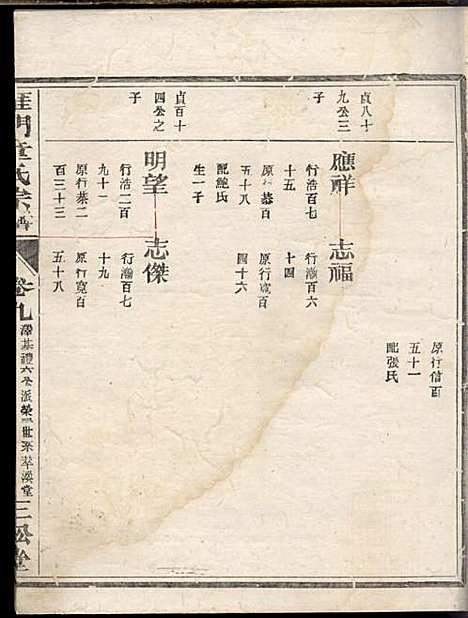 原行信百
五十一
配張氏
貞八十
九公三
子
應祥
行浩百七
十五
原行恭百
五十八
配鮑氏
生一子
志福
行瀚百六
十四
原行寬百
四十六
貞百十
四公之
子
明望
行浩二百
九十一
原行恭二
百三十三
志傑
行瀚百七
十九
原行寬百
五十八
門童氏宗譜
卷九
三公堂